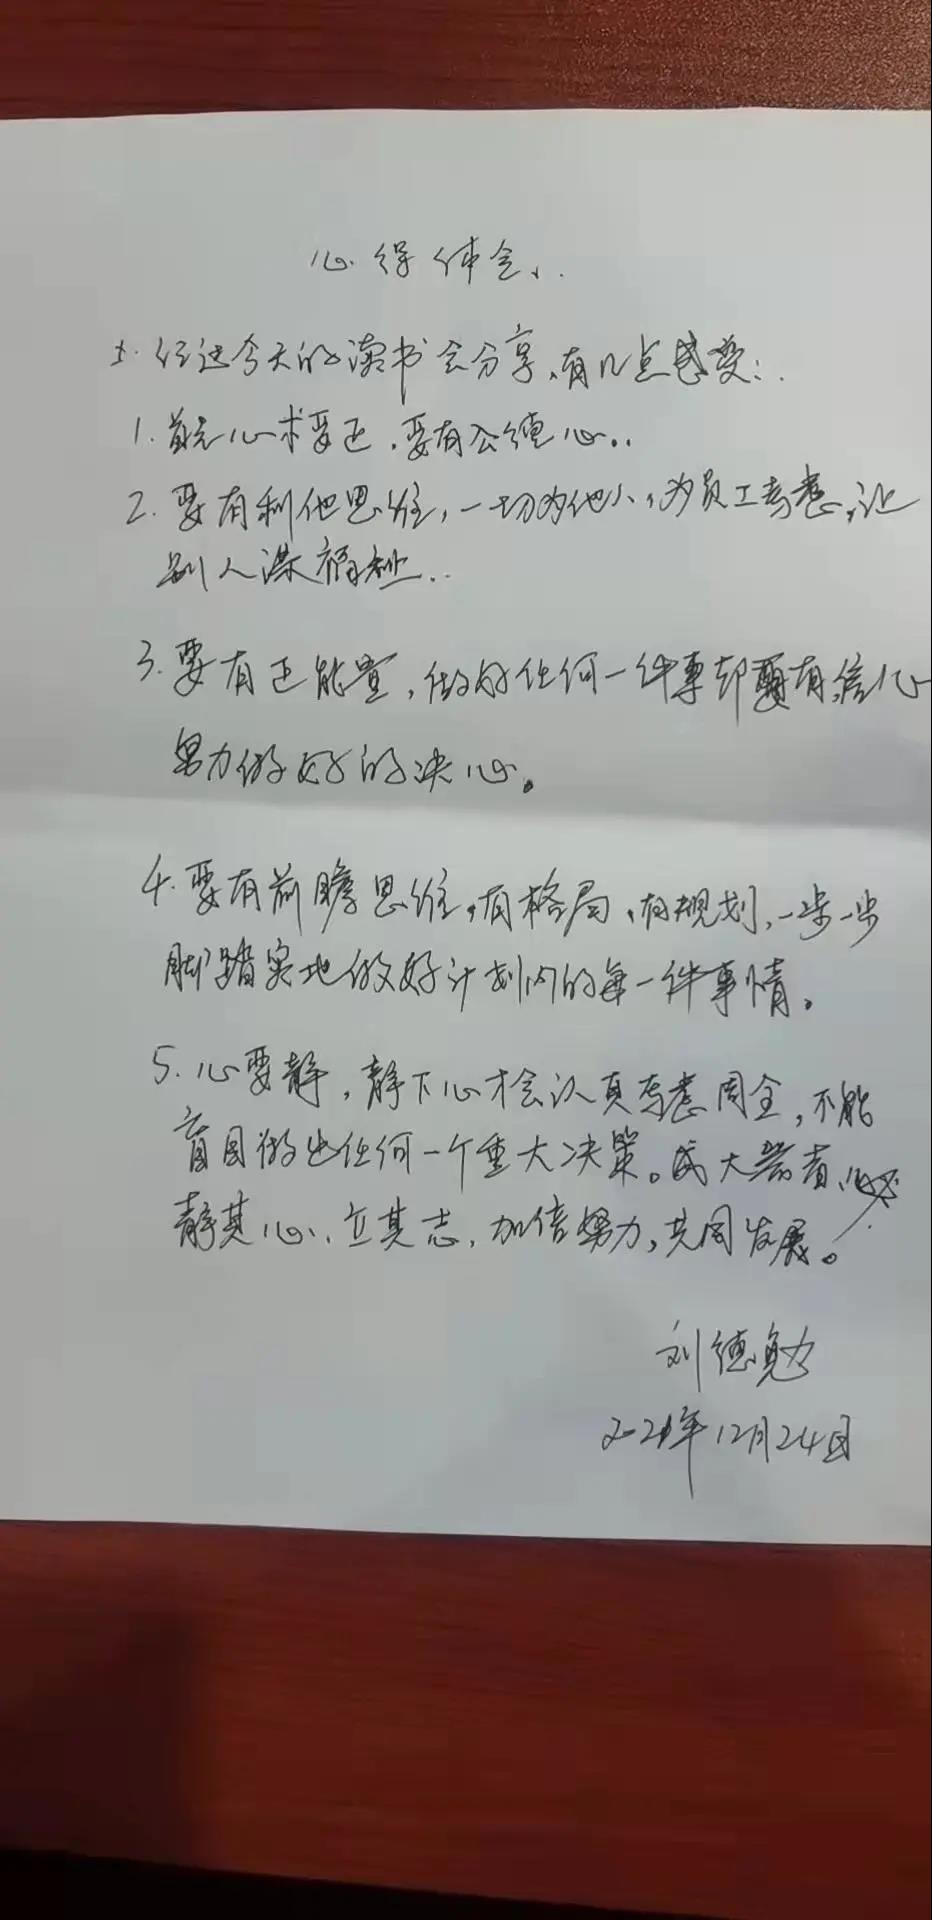 心得体会
经过今天的读书会分享,有几点感受:
1. 首先心术要正,要有公德心..
2. 要有利他思维,一切为他人,为员工考虑,让
别人谋福祉..
3. 要有正能量,做好任何一件事都要有信心
努力做好的决心。
4. 要有前瞻思维,有格局,有规划,一步一步
脚踏实地做好计划内的每一件事情。
5. 心要静,静下心才会认真考虑周全,不能
盲目做出任何一个重大决策。成大器者,必
静其心,立其志,加倍努力,共同发展。
刘德勉
2021年12月24日